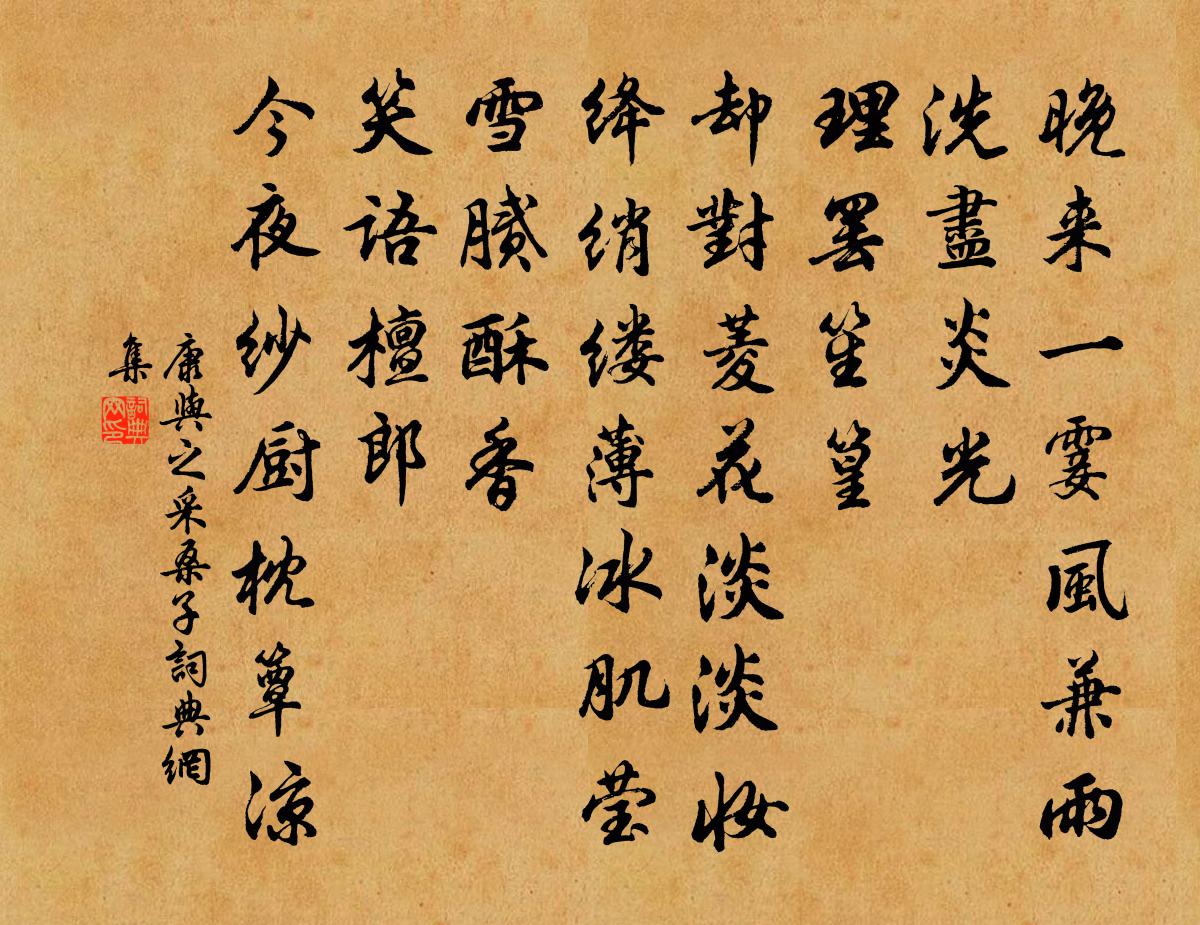 晚来一霎風兼雨
洗盡炎光
理罢笙篁
却對菱花淡淡妆
绛绡缕薄冰肌莹
雪膩酥香
笑語檀郎
今夜纱厨枕簟涼
康與之采桑子詞典網
集
詞典
网印